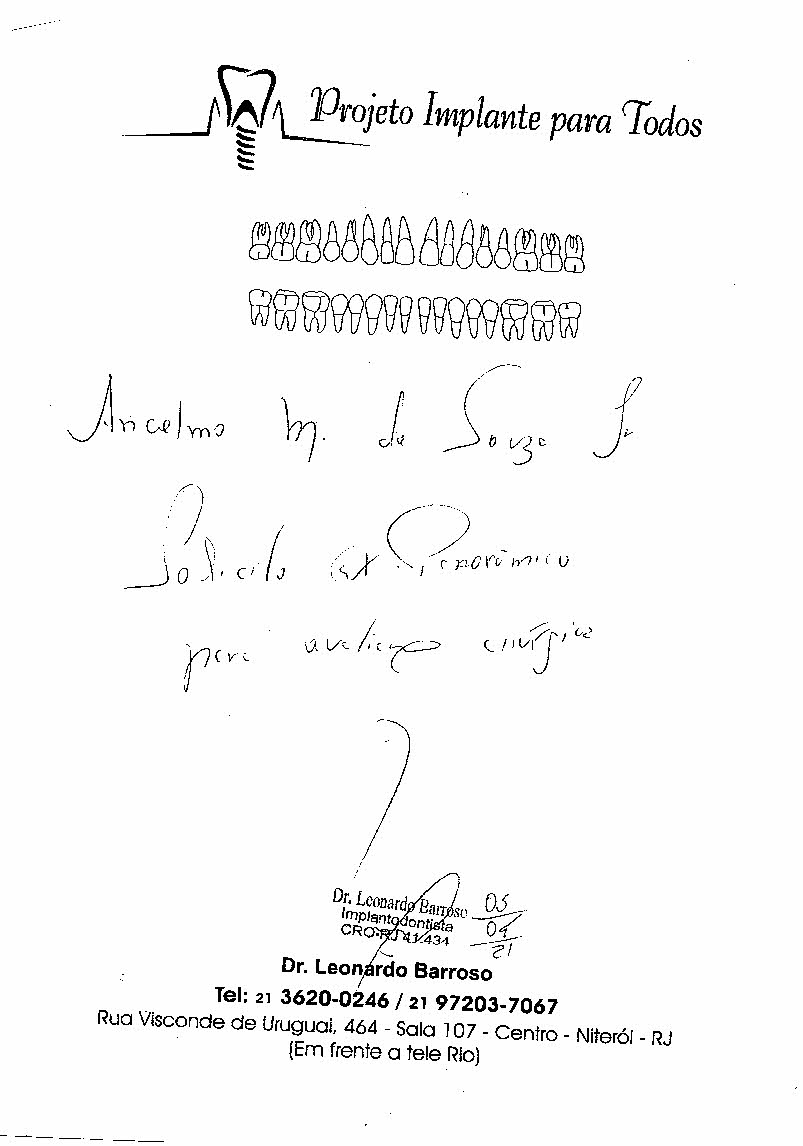 Projeto Implante para Todos
Ancelmo M. de Souza Jr
Solicito RX Panorâmico
para avaliação cirúrgica
Dr. Leonardo Barroso
Implantodontista
CRO-RJ 41434
05
04
21
Dr. Leonardo Barroso
Tel: 21 3620-0246 / 21 97203-7067
Rua Visconde de Uruguai, 464 - Sala 107 - Centro - Niterói - RJ
(Em frente a tele Rio)